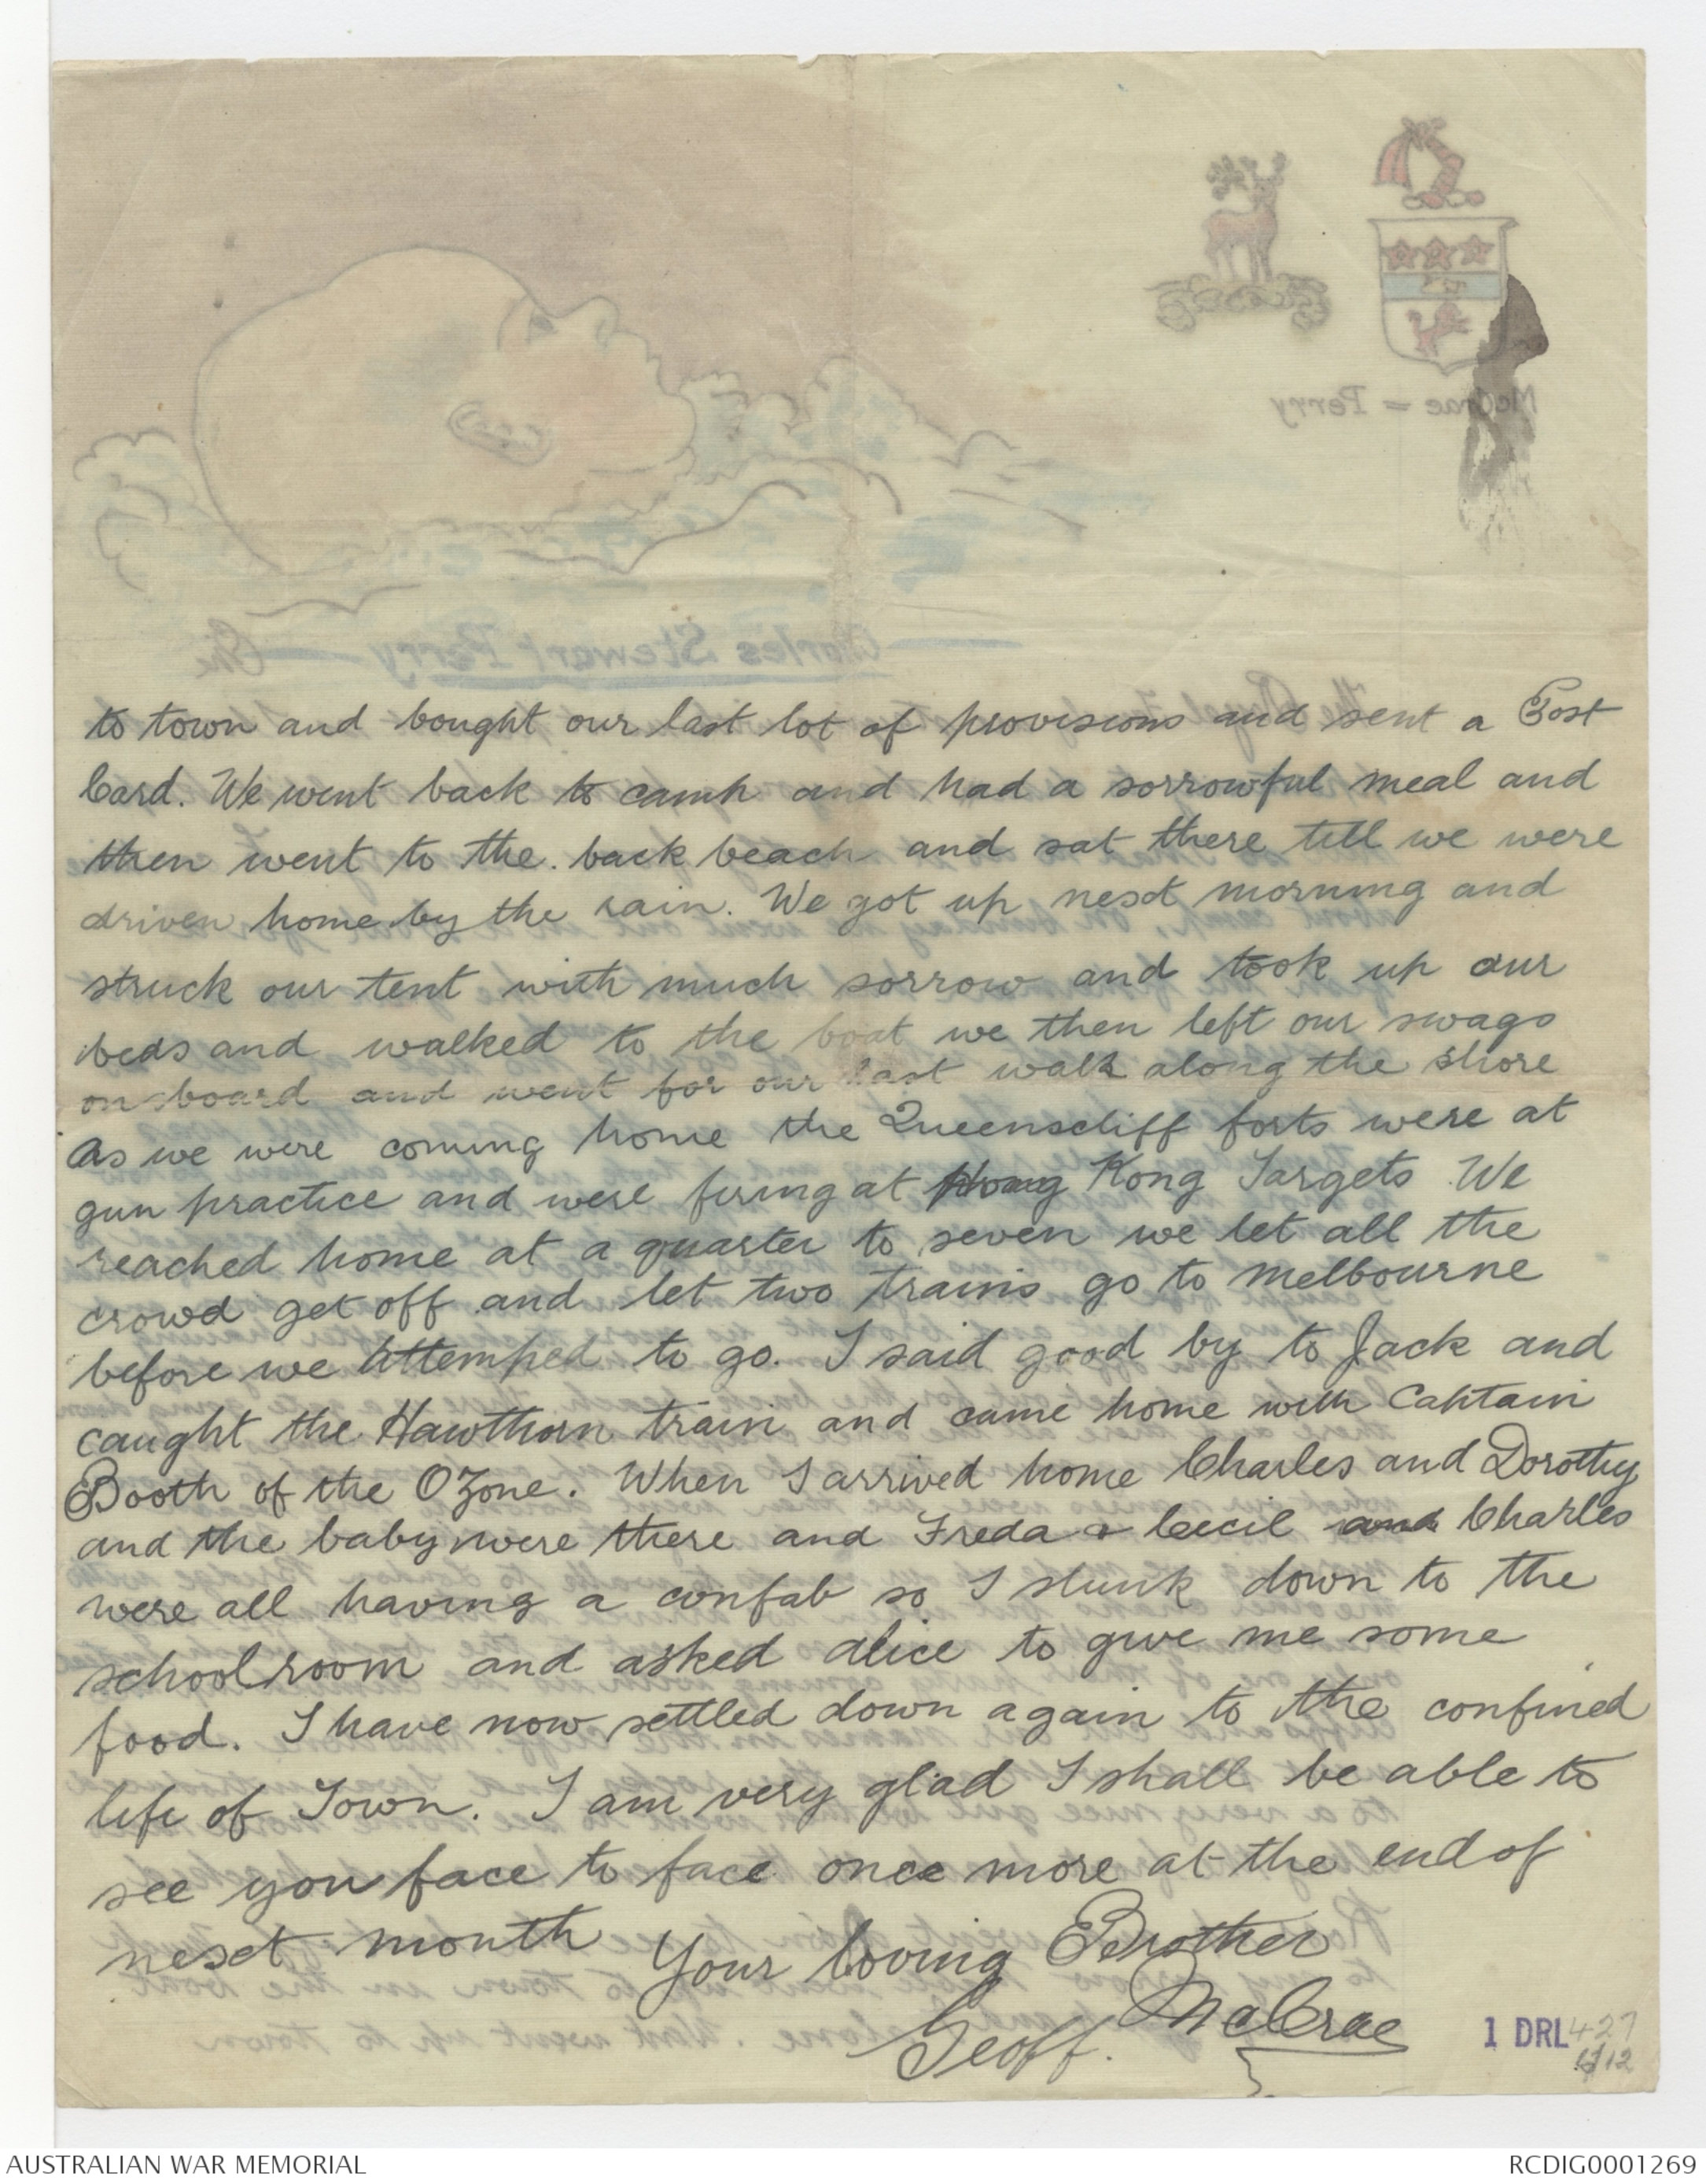 McCrae = Perry
Charles Stewart Perry
to town and bought our last lot of provisions and sent a Post
Card. We went back to camp and had a sorrowful meal and
then went to the back beach and sat there till we were
driven home by the rain. We got up next morning and
struck our tent with much sorrow and took up our
beds and walked to the boat we then left our swags
on board and went for our last walk along the shore
As we were coming home the Queenscliff forts were at
gun practice and were firing at Kong Targets We
reached home at a quarter to seven we let all the
crowd get off and let two trains go to Melbourne
before we attemped to go. I said good by to Jack and
caught the Hawthorn train and came home with Captain
Booth of the Ozone. When I arrived home Charles and Dorothy
and the baby were there and Freda & Cecil and Charles
were all having a confab so I slunk down to the
schoolroom and asked Alice to give me some
food. I have now settled down again to the confined
life of Town. I am very glad I shall be able to
see you face to face once more at the end of
next month Your loving Brother
Geoff. McCrae
1 DRL 427
6/12
AUSTRALIAN WAR MEMORIAL
RCDIG0001269